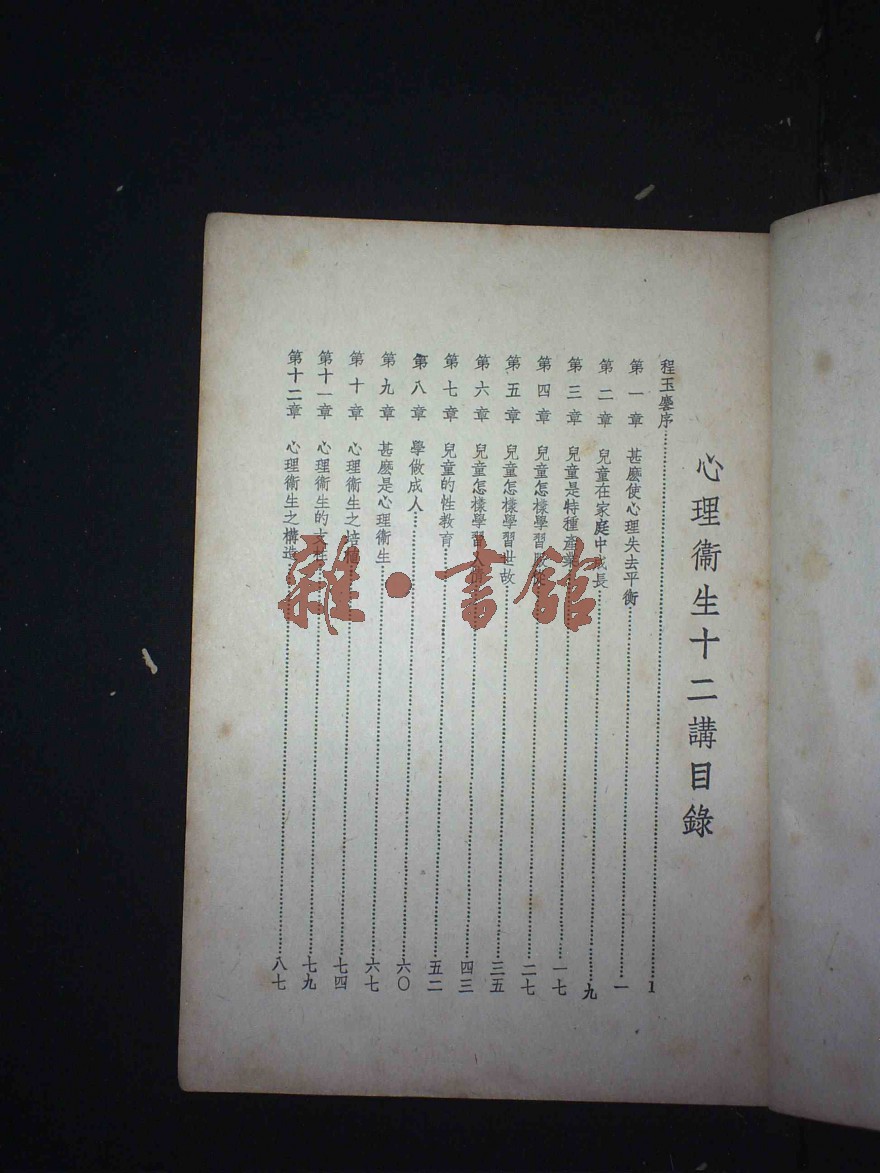 心理衞生十二講目錄
程玉麐序 1
第一章 甚麽使心理失去平衡 一
第二章 兒童在家庭中成長 九
第三章 兒童是特種產業 一七
第四章 兒童怎樣學習服從 二七
第五章 兒童怎樣學習世故 三五
第六章 兒童怎樣學習人情 四三
第七章 兒童的性教育 五二
第八章 學做成人 六〇
第九章 甚麽是心理衞生 六七
第十章 心理衞生之培植 七四
第十一章 心理衞生的支柱 七九
第十二章 心理衞生之構造 八七
雜·書館